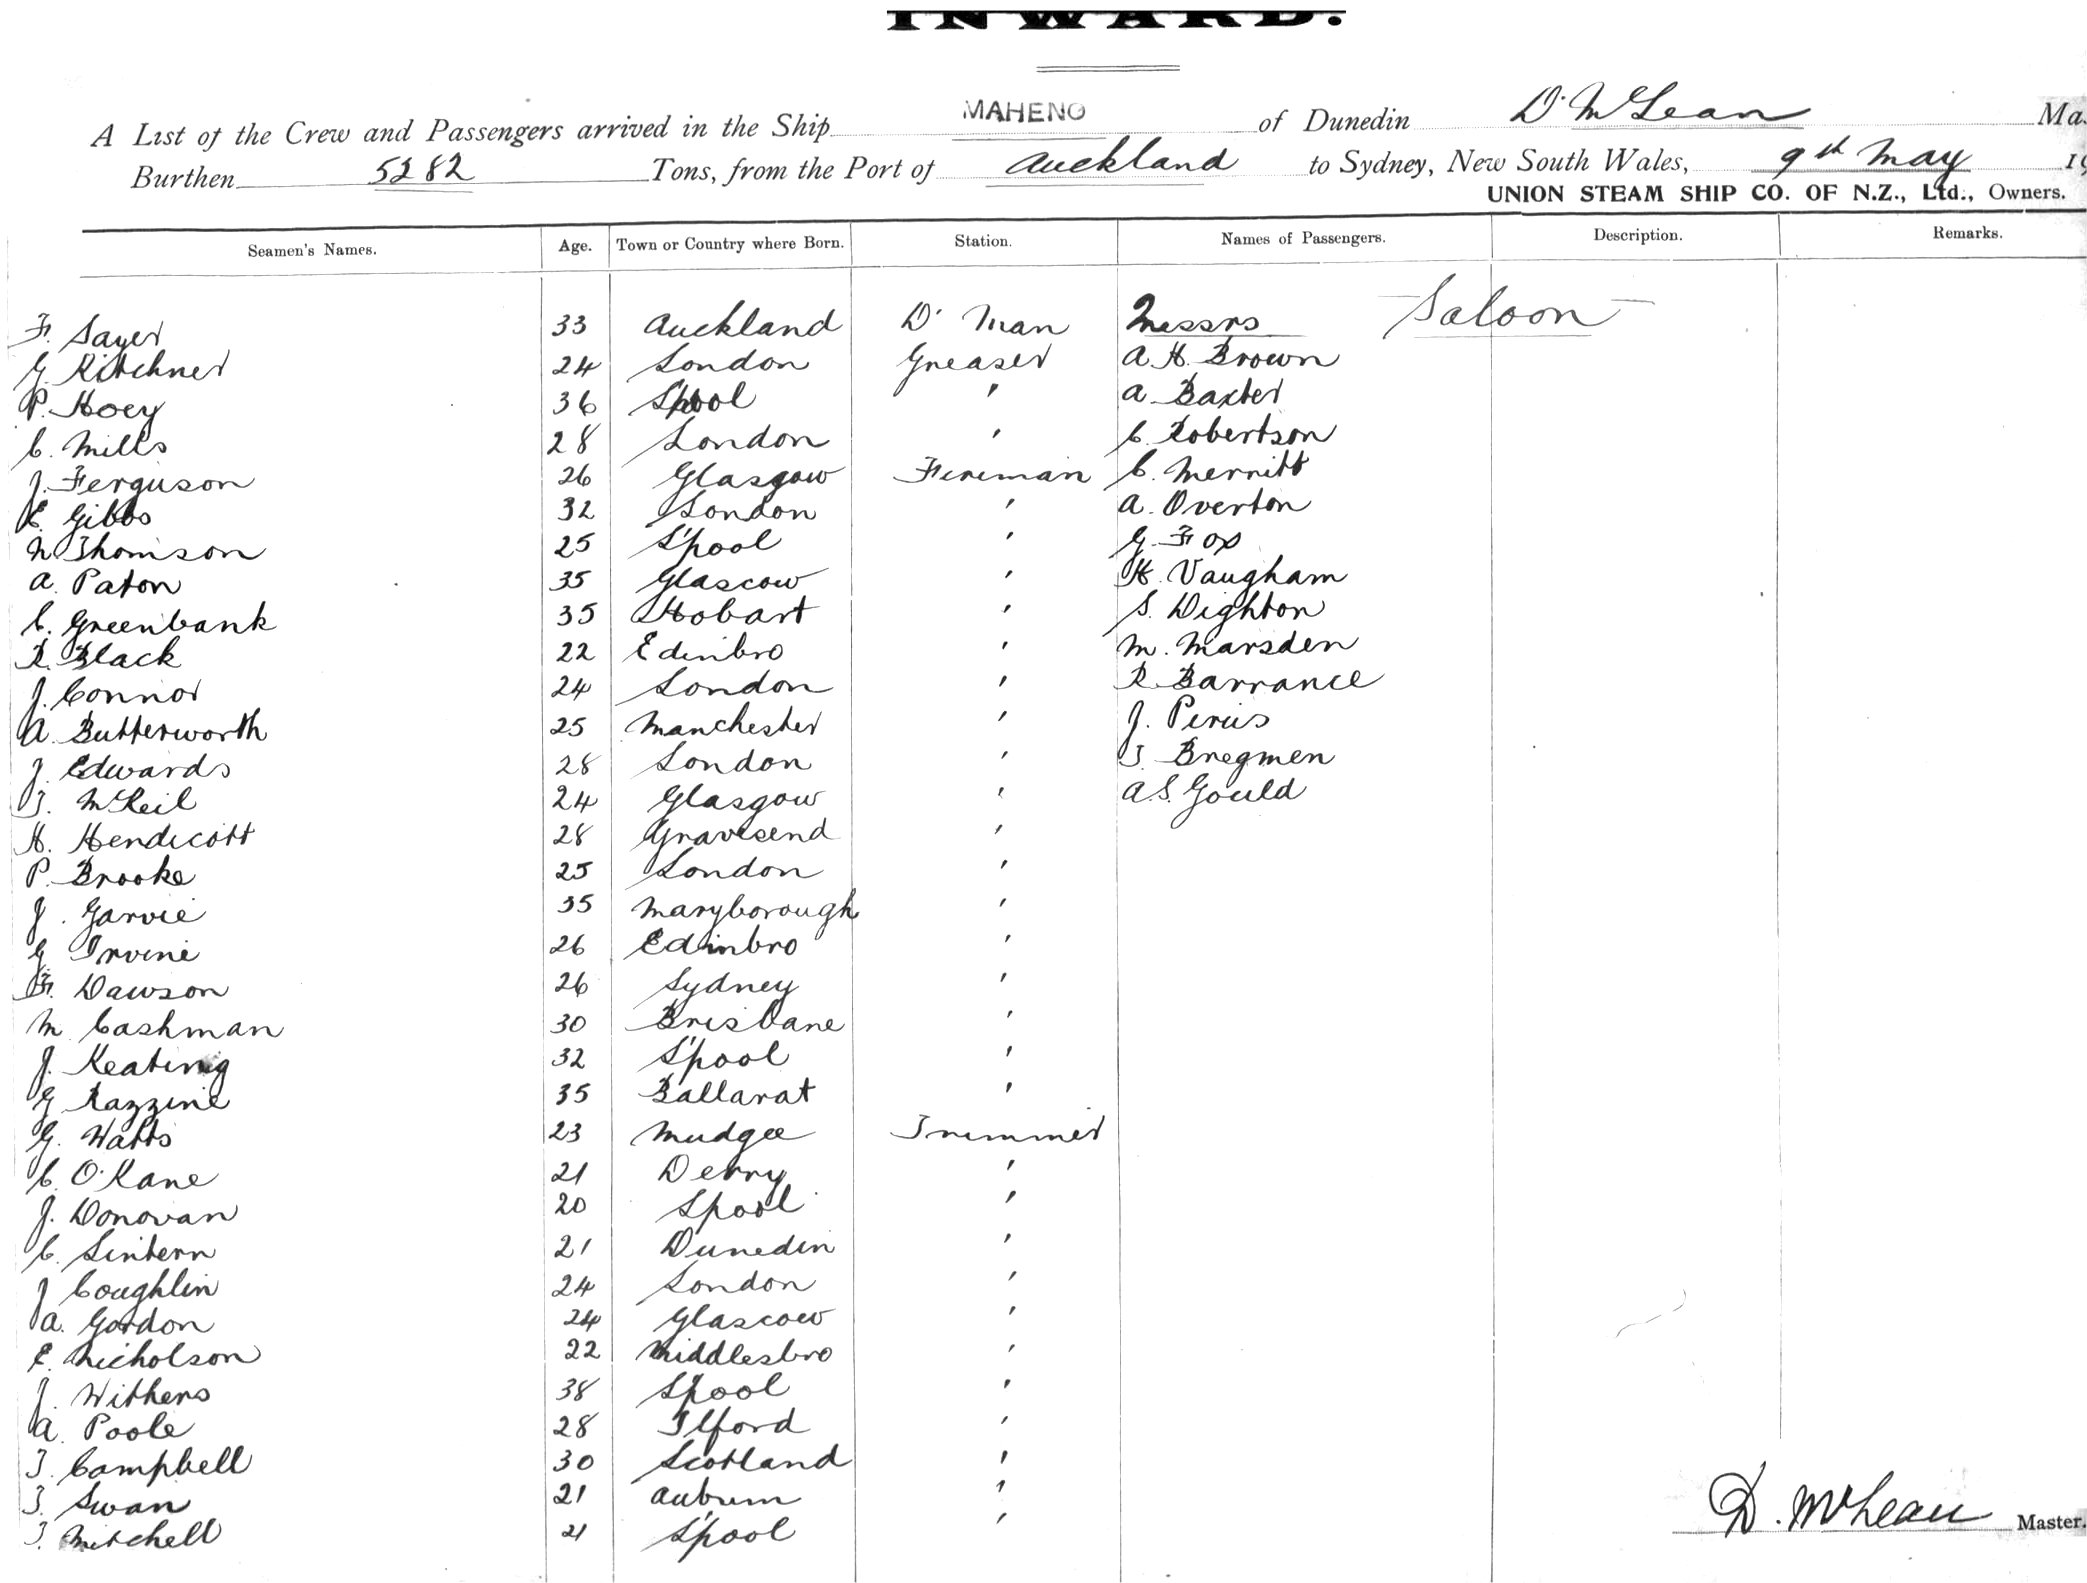 INWARD.
A List of the Crew and Passengers arrived in the Ship MAHENO of Dunedin D. McLean Ma
Burthen 5282 Tons, from the Port of Auckland to Sydney, New South Wales, 9th May 19
UNION STEAM SHIP CO. OF N.Z., Ltd., Owners.
Seamen's Names. Age. Town or Country where Born. Station. Names of Passengers. Description. Remarks.
Saloon
F. Sayer 33 Auckland D' Man Messrs
G. Kitchner 24 London Greaser A. H. Brown
P. Hoey 36 S'pool ' A Baxter
C. Mills 28 London ' C. Robertson
J. Ferguson 26 Glasgow Fireman C. Merritt
E. Gibbs 32 London ' A. Overton
N Thomson 25 S'pool ' G. Fox
A. Paton 35 Glascow ' H. Vaugham
C. Greenbank 35 Hobart ' S. Dighton
R. Black 22 Edinbro ' M. Marsden
J. Connor 24 London ' R. Barrance
A. Butterworth 25 Manchester ' J.
J. Edwards 28 London ' T. Bregmen
T. McKeil 24 Glasgow ' A. S. Gould
H. Hendicott 28 Gravesend '
P. Brooke 25 London '
J. Garvie 35 Maryborough '
G Irvine 26 Edinbro '
F. Dawson 26 Sydney '
M Cashman 30 Brisbane '
J. Keating 32 S'pool '
G Razzine 35 Ballarat '
G. Watts 23 Mudgee Trimmer
C. O'Kane 21 Derry '
J. Donovan 20 Spool '
C. Sintern 21 Dunedin '
J Coughlin 24 London '
A. Gordon 24 Glascow '
E. Nicholson 22 Middlesbro '
J. Withers 38 S'pool '
A. Poole 28 Ilford '
T. Campbell 30 Scotland '
T. Swan 21 Auburn '
T. Mitchell 21 S'pool '
D. McLean Master.